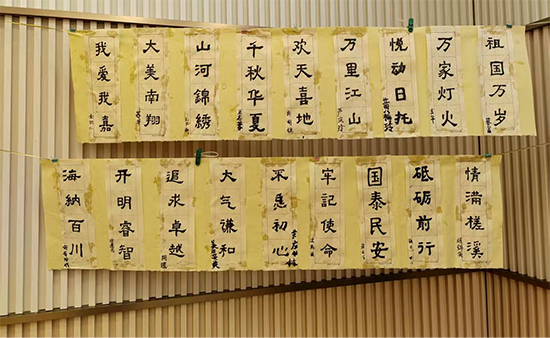 我爱我嘉
大美南翔
山河錦绣
千秋华夏
欢天喜地
万里江山
悦动日托
万家灯火
祖国万岁
海纳百川
开明睿智
追求卓越
大气谦和
不忘初心
牢記使命
国泰民安
砥砺前行
情满槎溪